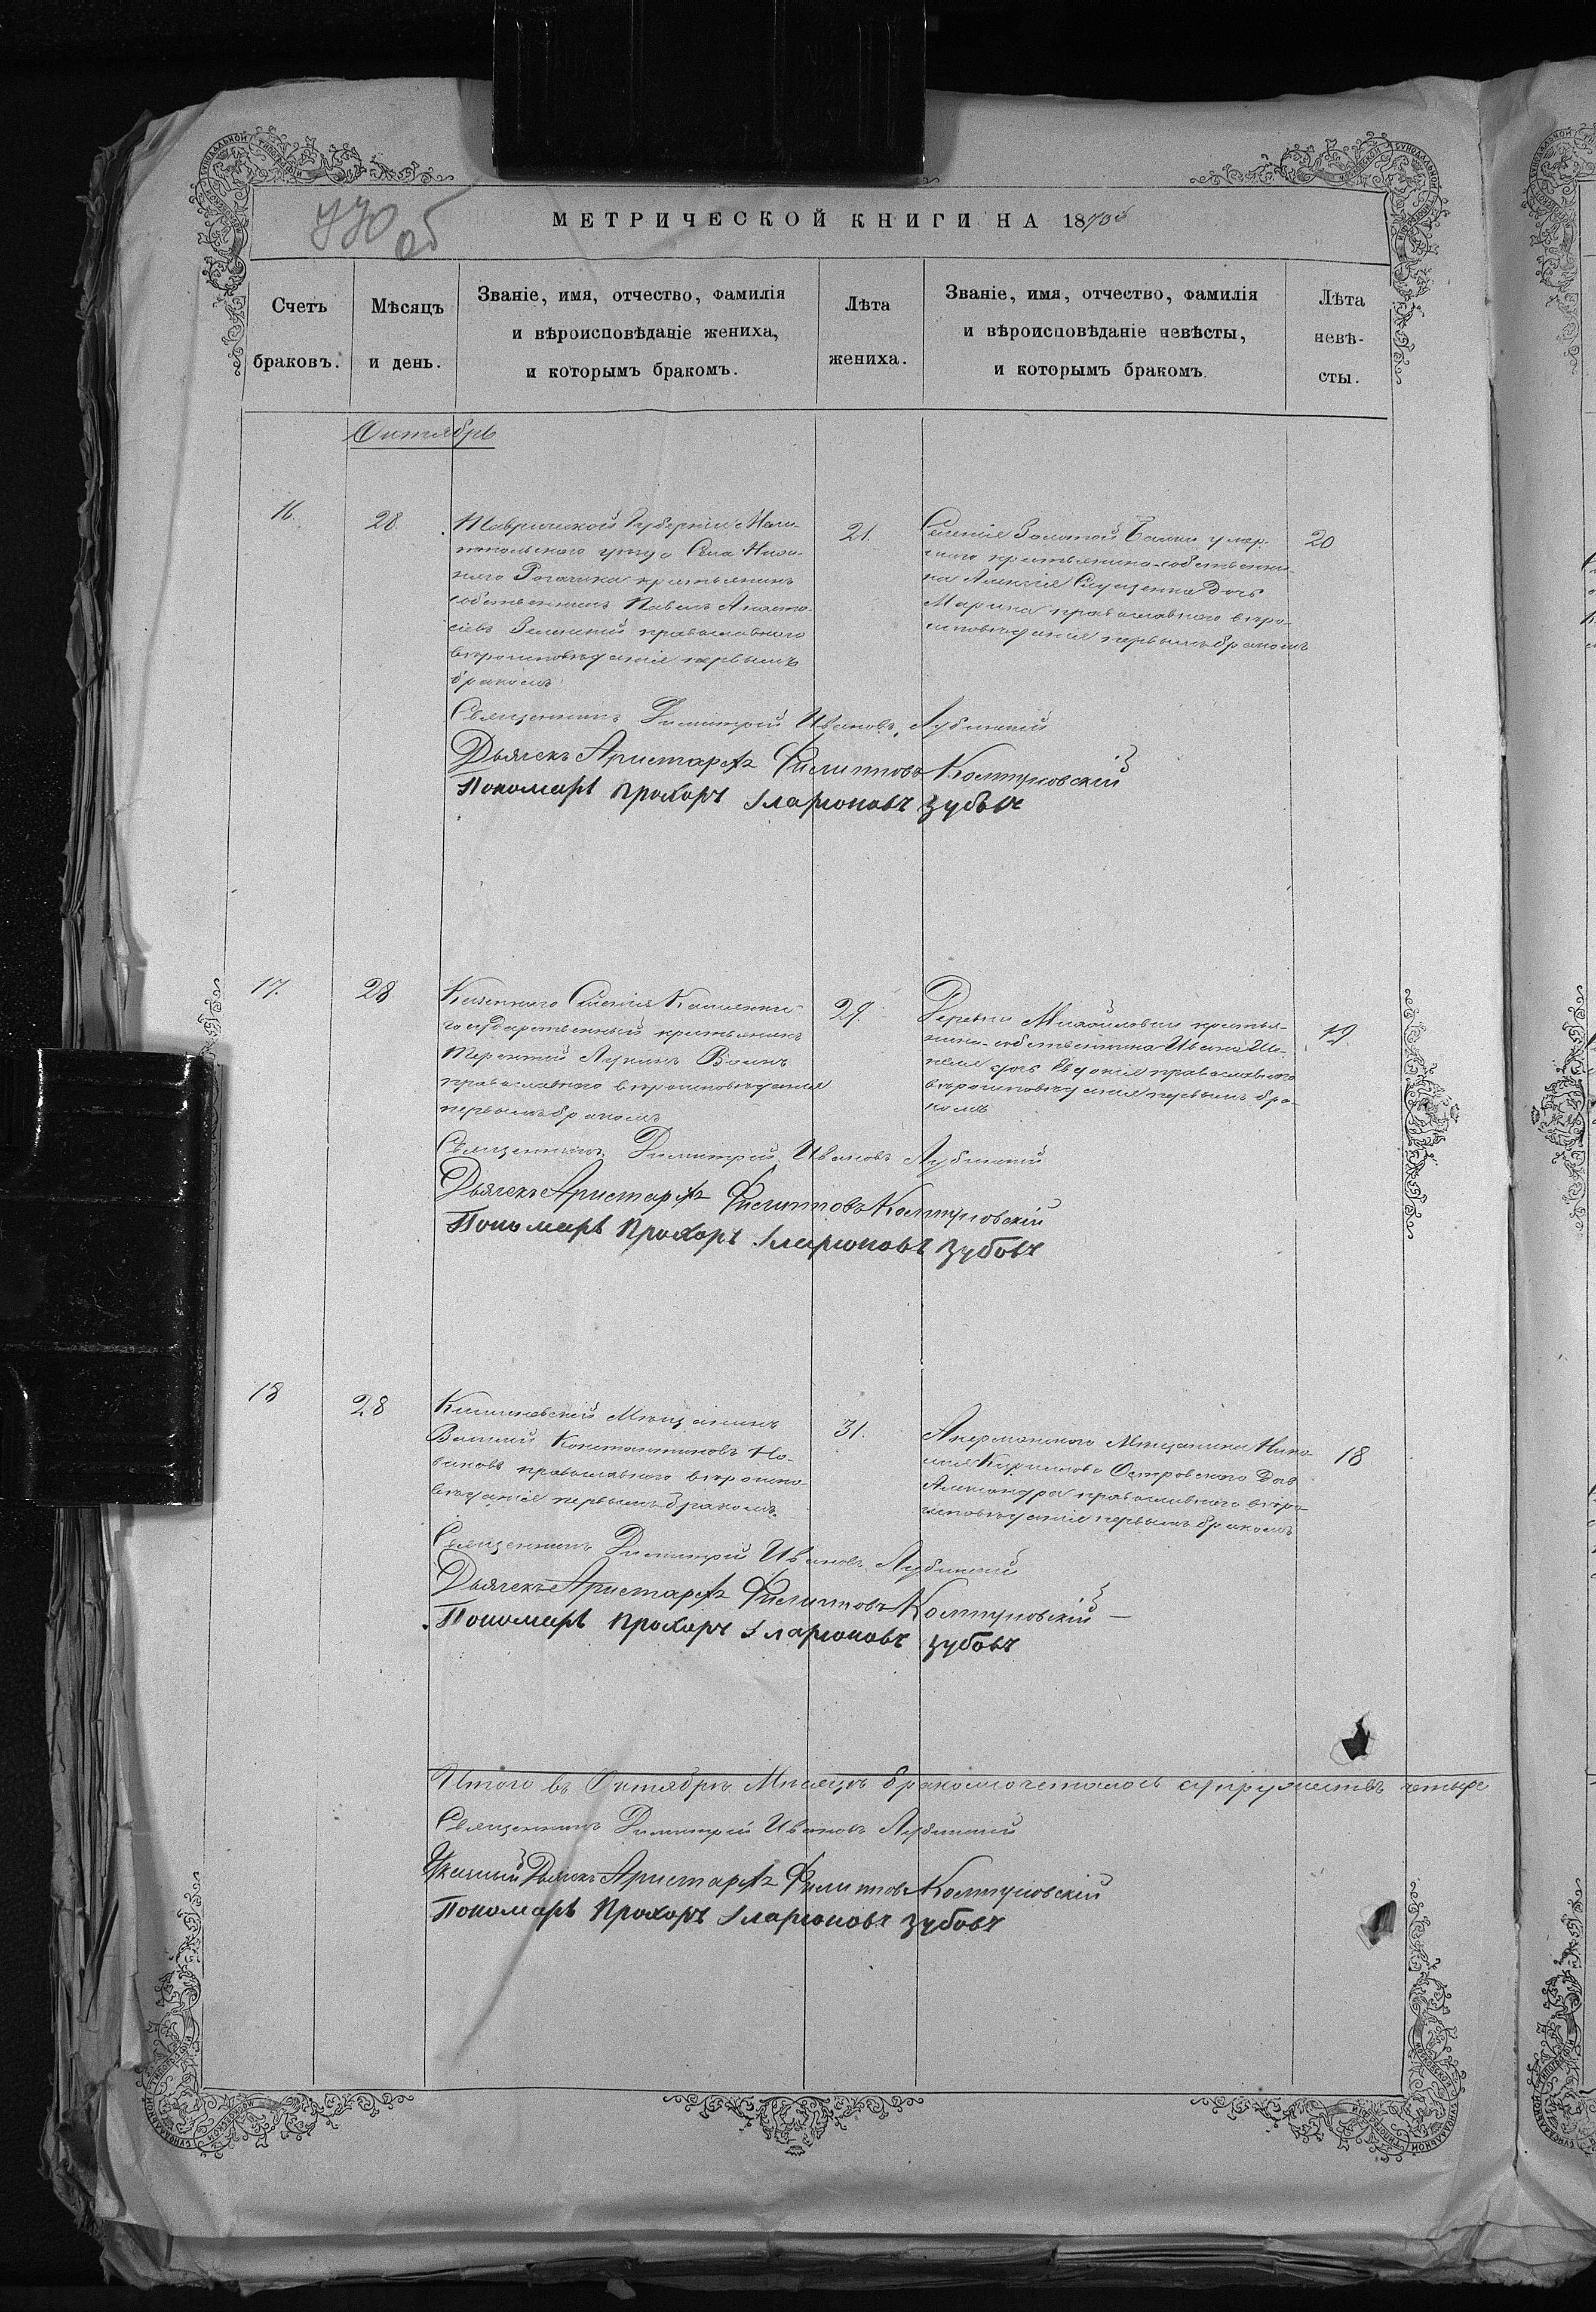 770 об
МЕТРИЧЕСКОЙ КНИГИ НА 1873й
Счетъ браковъ.
Мѣсяцъ и день.
Званіе, имя, отчество, фамилія
и вѣроисповѣданіе жениха,
и которымъ бракомъ.
Лѣта жениха.
Званіе, имя, отчество, фамилія
и вѣроисповѣданіе невѣсты,
и которымъ бракомъ.
Лѣта невѣ-
сты.
Октябрь
16.
28.
Таврической Губерніи Мели-
топольскаго уѣзда Села Ниж-
няго Рогачика крестьянинъ
собственникъ Павелъ Анаста-
сіевъ православнаго
вѣроисповѣданія первымъ
бракомъ
21.
Селенія Золотой Балки умер-
шаго крестьянина-собственни-
ка Алексія Дочь
Марина православнаго вѣро-
исповѣданія первымъ бракомъ
20
Священникъ Димитрій Ивановъ Лубинскій
Дьячекъ Аристархъ Филипповъ Колтуновскій
Пономарь Прохоръ Іларіоновъ Зубовъ
17.
28
Казеннаго Селенія Каменки
государственный крестьянинъ
Терентій Лукинъ
православнаго вѣроисповѣданія
первымъ бракомъ
29.
Деревни Михайловки крестья-
нина-собственника Ивана
дочь Евдокія православнаго
вѣроисповѣданія первымъ бра-
комъ
19.
Священникъ Димитрій Ивановъ Лубинскій
Дьячекъ Аристархъ Филипповъ Колтуновскій
Пономарь Прохоръ Іларіоновъ Зубовъ
18
28
Кишиневскій Мѣщанинъ
Василій Константиновъ Но-
ваковъ православнаго вѣроиспо-
вѣданія первымъ бракомъ.
31.
Акерманскаго Мѣщанина Нико-
лая Кирилова Островскаго Дочь
Александра православнаго вѣро-
исповѣданія первымъ бракомъ
18
Священникъ Димитрій Ивановъ Лубинскій
Дьячекъ Аристархъ Филипповъ Колтуновскій
Пономарь Прохоръ Іларіоновъ Зубовъ
Итого въ Октябрѣ Мѣсяцѣ бракосочеталось супружествъ четыре
Священникъ Димитрій Ивановъ Лубинскій
Дьячекъ Аристархъ Филипповъ Колтуновскій
Пономарь Прохоръ Іларіоновъ Зубовъ